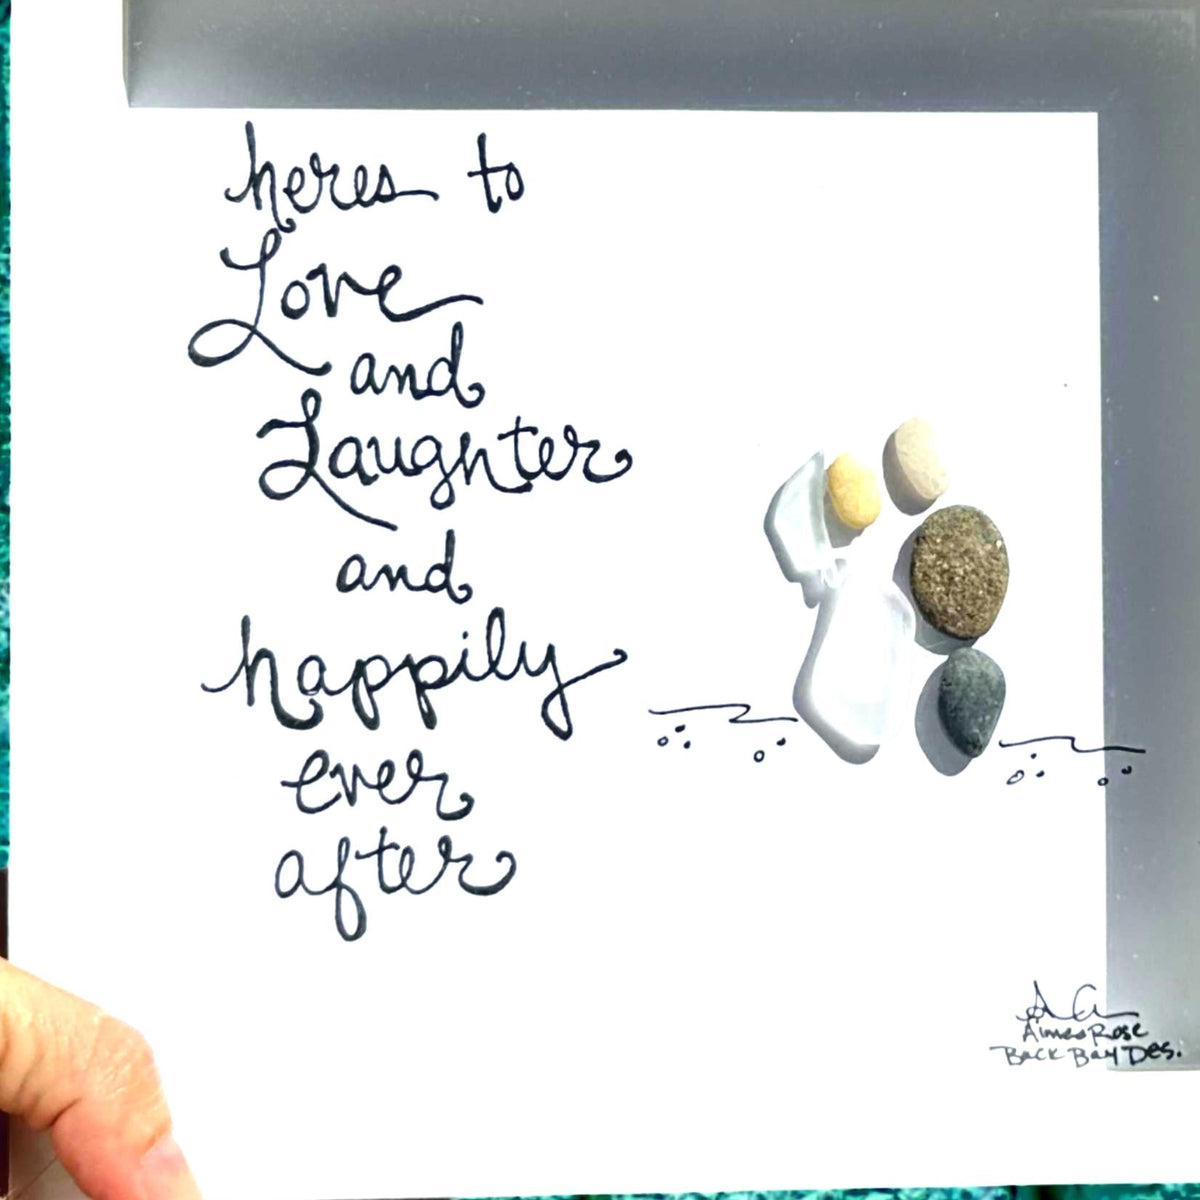 heres to
Love
and
Laughter
and
happily
ever
after
Aimee Rose
Back Bay Des.